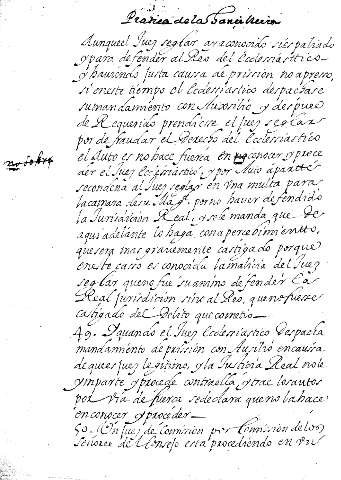 Practica de la Chancilleria
Aunque el Juez seglar aya conocido si es paliado
y para defender al Reo del Ecclesiastico
y haviendo justa causa de prission no apreso,
si en este tiempo el Ecclesiastico despachase
su mandamiento con Auxilio y despues
de Requerido prendiese el Juez seglar
por defraudar el Derecho del Ecclesiastico
el Auto es no hace fuerza en conocer y proce
der el Juez Ecclesiastico, y por Auto aparte
se condena al Juez seglar en una multa para
la camara de su Mag. por no haver defendido
la Jurisdicion Real, y se le manda que de
aqui adelante lo haga con apercebimiento,
que sera mas gravemente castigado porque
en este casso es conocida la malicia del Juez
seglar que no fue su animo defender la
Real jurisdicion sino al Reo, que no fuese
castigado del Delito que cometio
49. Y quando el Juez Ecclesiastico Despacha
mandamiento de prission con Auxilio en causa
de que es Juez lexitimo, y la Justicia Real no le
ymparte y procede contra ella, y trae los autos
por via de fuerza se declara que no la hace
en conocer y proceder
50. Un Juez de Comission por Comission de los
Señores del Consejo esta procediendo en un